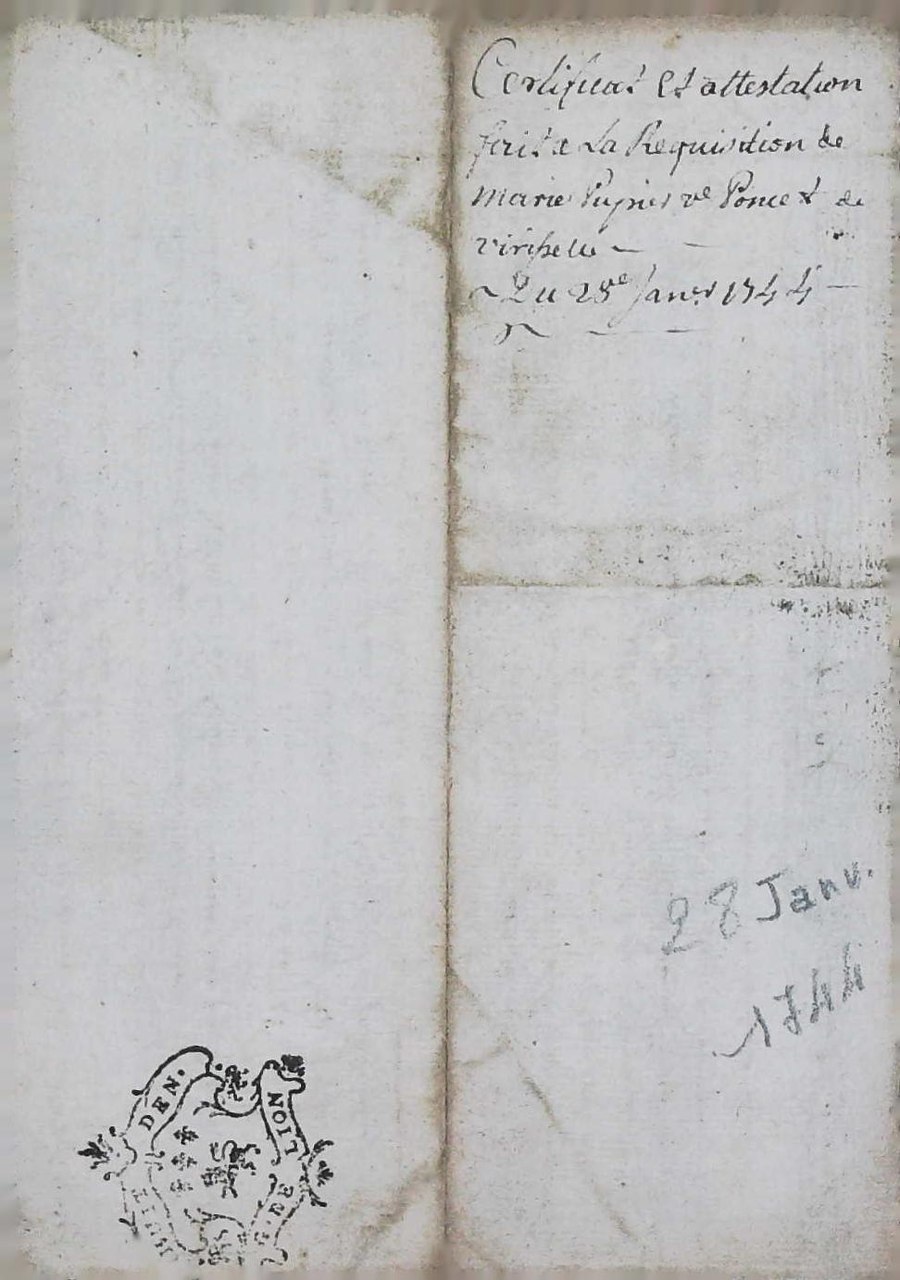 Certificat et attestation
fait a La Requisition de
marie Pupier ve Poncet de
viriselle
Du 28e Janer 1744
28 Janv.
1744
DEN.
LION